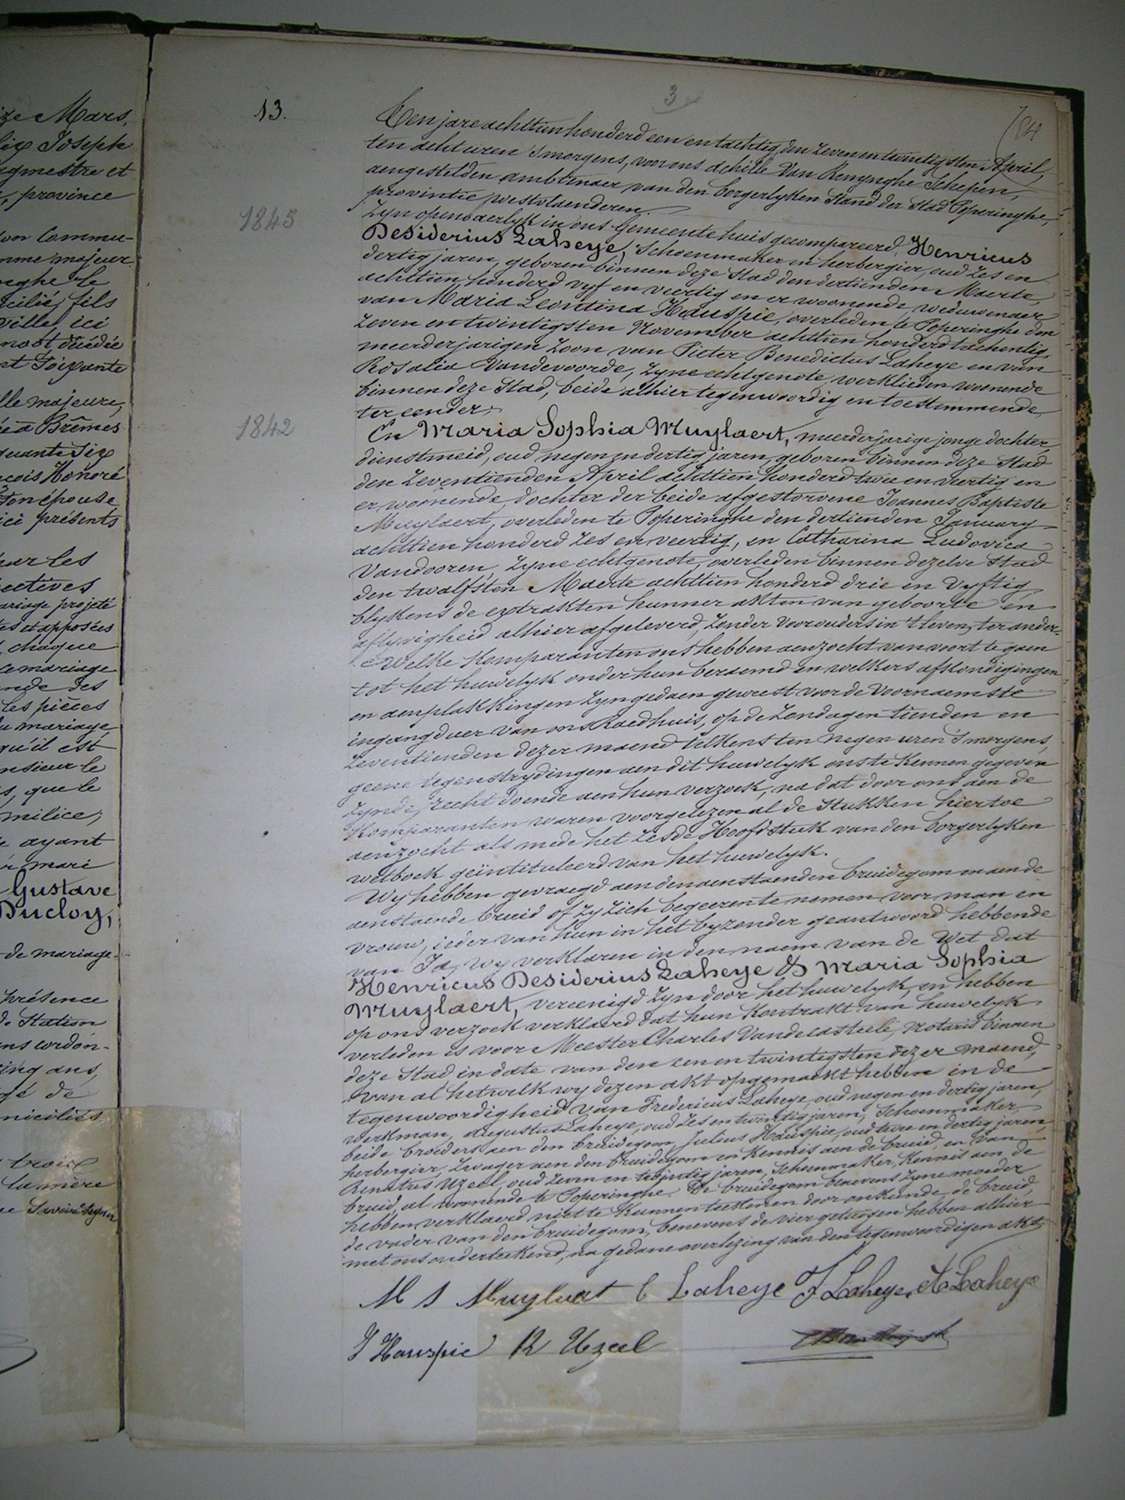 ze Mars,
lix Joseph
rgmestre et
, province
on Commu-
mme majeur
nghe le
cilié, fils
ville, ici
nost décédé
nt Soixante
lle majeure,
ée à Brêmes
quante Six
cois Honoré
Son épouse
ici présents
sur les
ectives
ariage projeté
tes et apposées
, chaque
ce mariage
nde des
les pièces
u mariage
qu'il est
nsieur le
s, que le
milice,
ayant
mari
Gustave
Ducloy,
de mariage.
présence
de Station
ns cordon-
cinq ans,
gé de
nicilies
trois
la mère
3
184
13.
Een jare achttien honderd een en tachtig, den zeven en twintigsten April,
ten acht uren 's morgens, voor ons Achille Van Renynghe Schepen,
aengestelden ambtenaer van den borgerlyken Stand der Stad Poperinghe,
provintie westvlaenderen.
1845
Zyn openbaerlyk in ons Gemeentehuis gecompareerd, Henricus
Desiderius Laheye, Schoenmaker en herbergier, oud zes en
dertig jaren, geboren binnen deze Stad den dertienden Maerte,
achttien honderd vyf en veertig en er woonende, weduwenaer
van Maria Leontina Hauspie, overleden te Poperinghe den
zeven en twintigsten November achttien honderd tachentig,
meerderjarigen Zoon van Pieter Benedictus Laheye en van
Rosalia Vandevoorde, zyne echtgenote, werklieden woonende
binnen deze Stad, beide alhier tegenwoordig en toestemmende
ter eender;
1842
En Maria Sophia Muylaert, meerderjarige jonge dochter,
dienstmeid, oud negen en dertig jaren, geboren binnen deze Stad
den Zeventienden April achttien honderd twee en veertig en
er woonende dochter der beide afgestorvene Joannes Baptiste
Muylaert, overleden te Poperinghe den dertienden January
achttien honderd zes en veertig, en Catharina Ludovica
Vandooren, zyne echtgenote, overleden binnen dezelve Stad
den twalfsten Maerte achttien honderd drie en vyftig,
blykens de extrakten hunner akten van geboorte en
aflyvigheid alhier afgeleverd, zonder voorouders in 't leven, ter ander-
e Welke komparanten ons hebben aenzocht van voort te gaen
tot het huwelyk onder hun beraemd en welkers afkondigingen
en aenplakkingen zyn gedaen geweest voor de voornaemste
ingangdeur van ons Raedhuis, op de Zondagen tienden en
Zeventienden dezer maend telkens ten negen uren 's morgens,
geene tegenstrydingen aen dit huwelyk ons te kennen gegeven
zynde, recht doende aen hun verzoek, na dat door ons aen de
komparanten waren voorgelezen al de Stukken hiertoe
aenzocht als mede het zesde Hoofdstuk van den borgerlyken
wetboek geïntituleerd van het huwelyk.
Wy hebben gevraegd aen den aenstaenden bruidegom en aen de
aenstaende bruid of zy zich begeerente nemen voor man en
vrouw, ieder van hun in het byzonder geantwoord hebbende
van Ja, wy verklaren in den naem van de Wet dat
Henricus Desiderius Laheye & Maria Sophia
Muylaert, vereenigd zyn door het huwelyk, en hebben
op ons verzoek verklaerd dat hun kontrakt van huwelyk
verleden is voor Meester Charles Vandecasteele, notaris binnen
deze Stad in date van den een en twintigsten dezer maend,
Van al hetwelk wy dezen akt opgemaekt hebben in de
tegenwoordigheid van Fredericus Laheye, oud negen en dertig jaren,
werkman, Augustus Laheye, oud zes en twintig jaren, Schoenmaker,
beide broeders aen den bruidegom, Julius Hauspie, oud twee en dertig jaren,
herbergier, zwager aen den bruidegom en kennis aen de bruid en van
Renatus Uzeel, oud zeven en tsjestig jaren, Schoenmaker, kennis aen de
bruid, al woonende te Poperinghe. De bruidegom benevens zyne moeder
hebben verklaerd niet te kunnen teekenen door onkunde, de bruid,
de vader van den bruidegom, benevens de vier getuigen hebben alhier
met ons onderteekend, na gedane overlezing van den tegenwoordigen akt.
M S Muylaert C Laheye F Laheye, A Laheye
J Hauspie R Uzeel